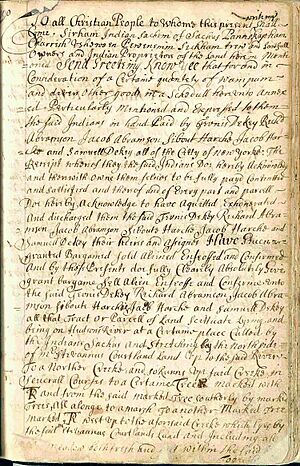 To all Christian People to Whome this present
Come. Sirham Indian Sachem of Sachus
Owners and Indian Proprietors of the Land herein Menti
oned Send Greeting Know Yee that for and in
Consideration of a Certaine quantety of wampum
and divers other goods in a Schedull hereunto Annex
ed Particularly Mentioned and to them
the said Indians in hand Paid by Tronis Dekey Richard
Abramson Jacob Abramson Sibout Harcks Jacob Har
cks and Samuell Dekey all of the Citty of New Yorke The
Receipt whereof they the said Indians Doe hereby Acknowledg
and therewith owne them selves to be fully payd Contented
and sattisfied and thereof and of Every part and parcell
Doe hereby Acknowledge to have Aquitted Exonerated
And discharged them the said Tronis Dekey Richard Abra
mson Jacob Abramson Sibout Harcks Jacob Harcks and
Samuell Dekey their heires and Assignes Have
granted Bargained Sold Aliened Enfeoffed and Confirmed
And by these Presents doe fully Clearly Absolutely Give
grant bargaine Sell Alien Enfeoffe and Confirme unto
the said Tronis Dekey Richard Abramson Jacob Abra
mson Sibout Harcks Jacob Harcks and Samuell Dekey
all that Tract or Parcell of Land Scittuate Lying and
being on Hudsons River at a Certaine place Called by
the Indians Sachus and Stretching by the North side
of Stevannus Courtland Land up the said River
To a Norther Creeke and up said Creeke in
Severall Courses to a Certaine Tree marked with
And from the said marked Tree Southerly by markt
Trees all alonge to a marsh To another Marked Tree
Marked up To the aforesaid Creeke which Lyes by
the said Stevannus Courtlands Land and Including all
within the said